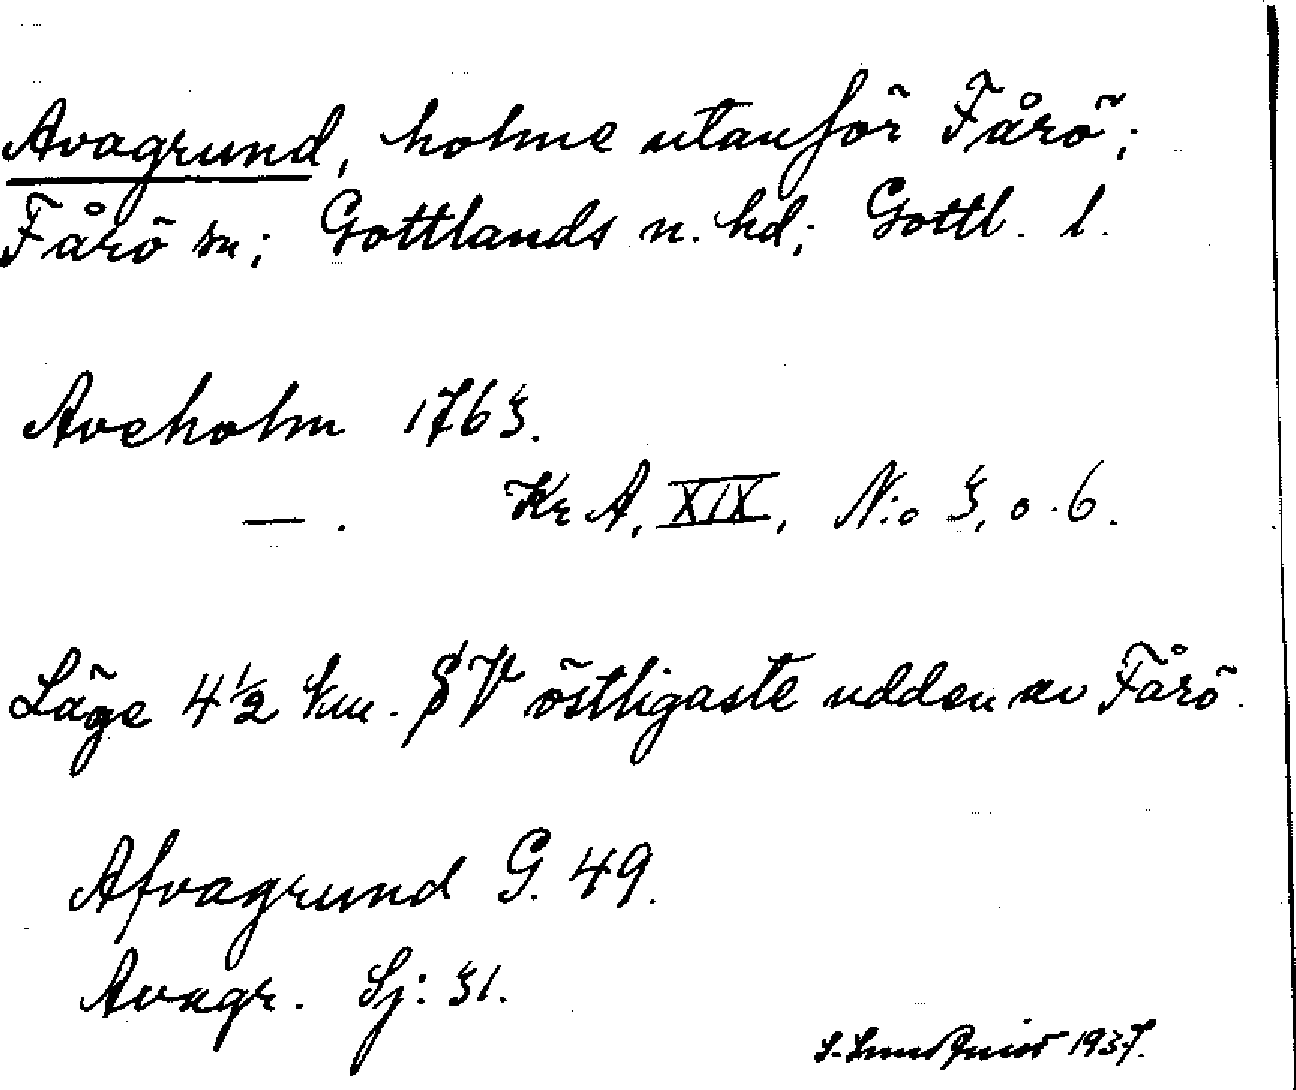 Avagrund, holme utanför Fårö;
Fårö sn; Gottlands n. hd; Gottl. l.
Aveholm 1765.
— . Kr A, XIX, N:o 5, o. 6.
Läge 4½ km. SV östligaste udden av Fårö.
Afvagrund G. 49.
Avagr. Sj: 51.
S. Lundquist 1937.